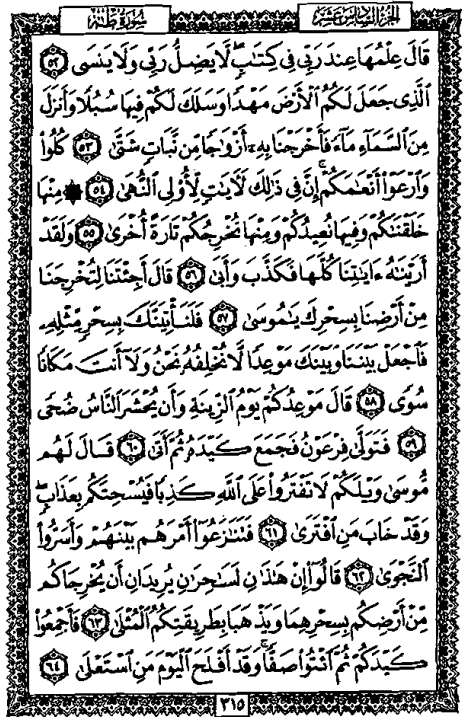 سُورَةُ طه الجزء السادس عشر
قَالَ عِلْمُهَا عِندَ رَبِّى فِى كِتَٰبٍۖ لَّا يَضِلُّ رَبِّى وَلَا يَنسَى ۝٥٢
ٱلَّذِى جَعَلَ لَكُمُ ٱلْأَرْضَ مَهْدًا وَسَلَكَ لَكُمْ فِيهَا سُبُلًا وَأَنزَلَ
مِنَ ٱلسَّمَآءِ مَآءً فَأَخْرَجْنَا بِهِۦٓ أَزْوَٰجًا مِّن نَّبَاتٍ شَتَّىٰ ۝٥٣ كُلُوا۟
وَٱرْعَوْا۟ أَنْعَٰمَكُمْۗ إِنَّ فِى ذَٰلِكَ لَءَايَٰتٍ لِّأُو۟لِى ٱلنُّهَىٰ ۝٥٤ ۞ مِنْهَا
خَلَقْنَٰكُمْ وَفِيهَا نُعِيدُكُمْ وَمِنْهَا نُخْرِجُكُمْ تَارَةً أُخْرَىٰ ۝٥٥ وَلَقَدْ
أَرَيْنَٰهُ ءَايَٰتِنَا كُلَّهَا فَكَذَّبَ وَأَبَىٰ ۝٥٦ قَالَ أَجِئْتَنَا لِتُخْرِجَنَا
مِنْ أَرْضِنَا بِسِحْرِكَ يَٰمُوسَىٰ ۝٥٧ فَلَنَأْتِيَنَّكَ بِسِحْرٍ مِّثْلِهِۦ
فَٱجْعَلْ بَيْنَنَا وَبَيْنَكَ مَوْعِدًا لَّا نُخْلِفُهُۥ نَحْنُ وَلَآ أَنتَ مَكَانًا
سُوًى ۝٥٨ قَالَ مَوْعِدُكُمْ يَوْمُ ٱلزِّينَةِ وَأَن يُحْشَرَ ٱلنَّاسُ ضُحًى
۝٥٩ فَتَوَلَّىٰ فِرْعَوْنُ فَجَمَعَ كَيْدَهُۥ ثُمَّ أَتَىٰ ۝٦٠ قَالَ لَهُم
مُّوسَىٰ وَيْلَكُمْ لَا تَفْتَرُوا۟ عَلَى ٱللَّهِ كَذِبًا فَيُسْحِتَكُم بِعَذَابٍۖ
وَقَدْ خَابَ مَنِ ٱفْتَرَىٰ ۝٦١ فَتَنَٰزَعُوٓا۟ أَمْرَهُم بَيْنَهُمْ وَأَسَرُّوا۟
ٱلنَّجْوَىٰ ۝٦٢ قَالُوٓا۟ إِنْ هَٰذَٰنِ لَسَٰحِرَٰنِ يُرِيدَانِ أَن يُخْرِجَاكُم
مِّنْ أَرْضِكُم بِسِحْرِهِمَا وَيَذْهَبَا بِطَرِيقَتِكُمُ ٱلْمُثْلَىٰ ۝٦٣ فَأَجْمِعُوا۟
كَيْدَكُمْ ثُمَّ ٱئْتُوا۟ صَفًّاۚ وَقَدْ أَفْلَحَ ٱلْيَوْمَ مَنِ ٱسْتَعْلَىٰ ۝٦٤
٣١٥